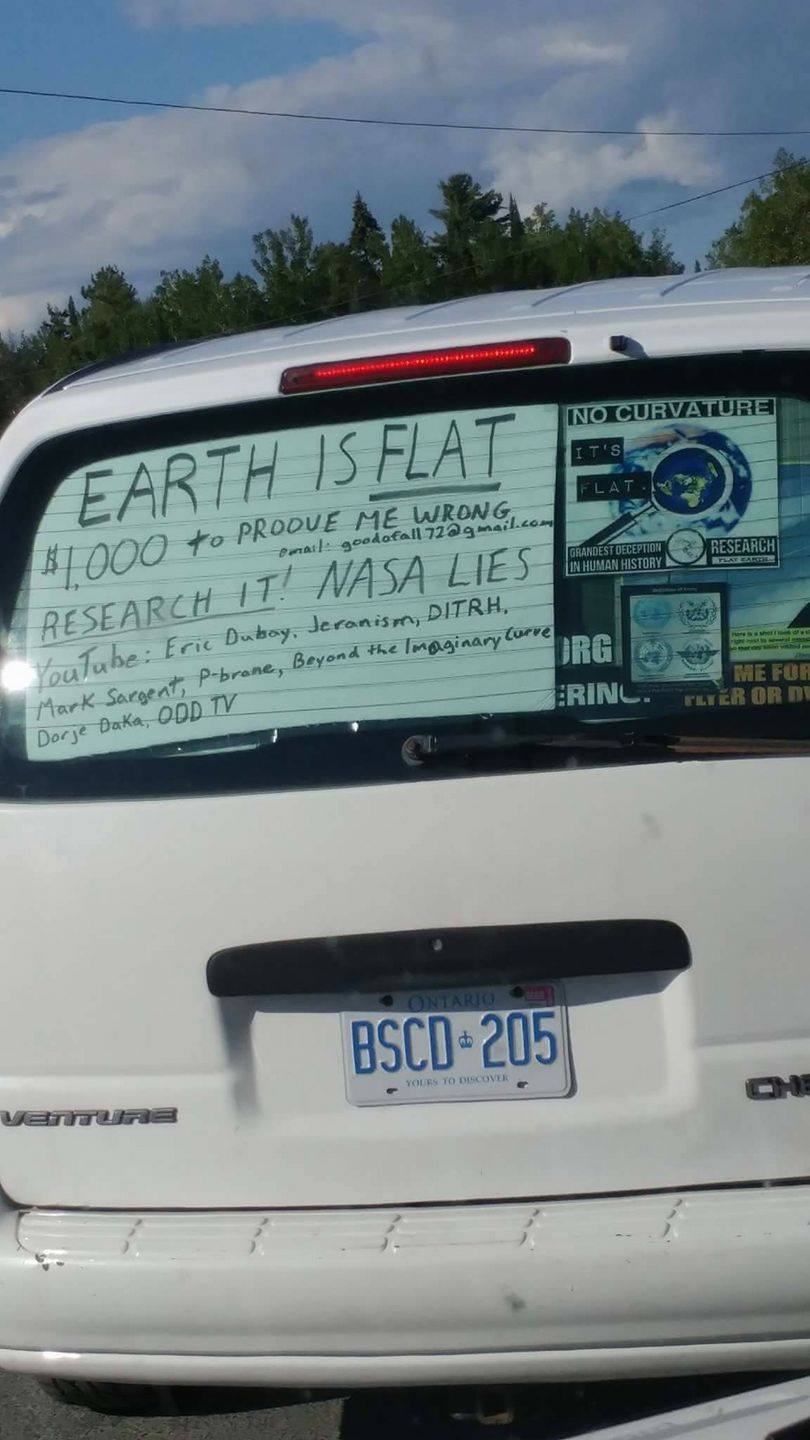 EARTH IS FLAT
$1,000 to PROOVE ME WRONG
email: goodofall72@gmail.com
RESEARCH IT! NASA LIES
YouTube: Eric Dubay, Jeranism, DITRH,
Mark Sargent, P-brane, Beyond the Imaginary Curve
Dorje Daka, ODD TV
NO CURVATURE
IT'S
FLAT.
GRANDEST DECEPTION
IN HUMAN HISTORY
RESEARCH
FLAT EARTH
ORG
ERING.
ME FOR
FLYER OR D
ONTARIO
BSCD 205
YOURS TO DISCOVER
VENTURE
CHE